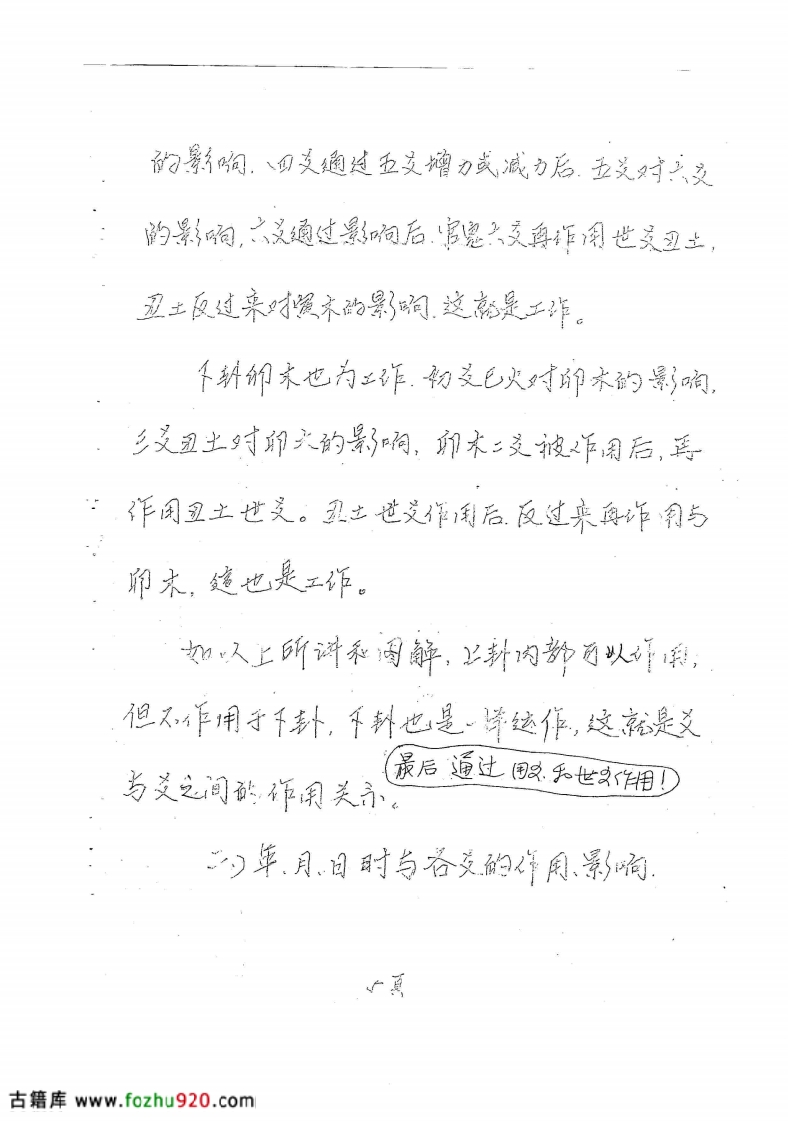 的影响.四爻通过五爻增力或减力后.五爻对六爻
的影响,六爻通过影响后.官鬼六爻再作用世爻丑土,
丑土反过来对寅木的影响.这就是工作。
下卦卯木也为工作.初爻巳火对卯木的影响,
三爻丑土对卯木的影响,卯木二爻被作用后,再
作用丑土世爻。丑土世爻作用后.反过来再作用与
卯木,这也是工作。
如以上所讲和图解,上卦内都可以作用,
但不作用于下卦,下卦也是一样运作,这就是爻
与爻之间的作用关示。
最后通过用爻和世爻作用!
二)年、月、日时与各爻的作用、影响.
5页
古籍库 www.fozhu920.com